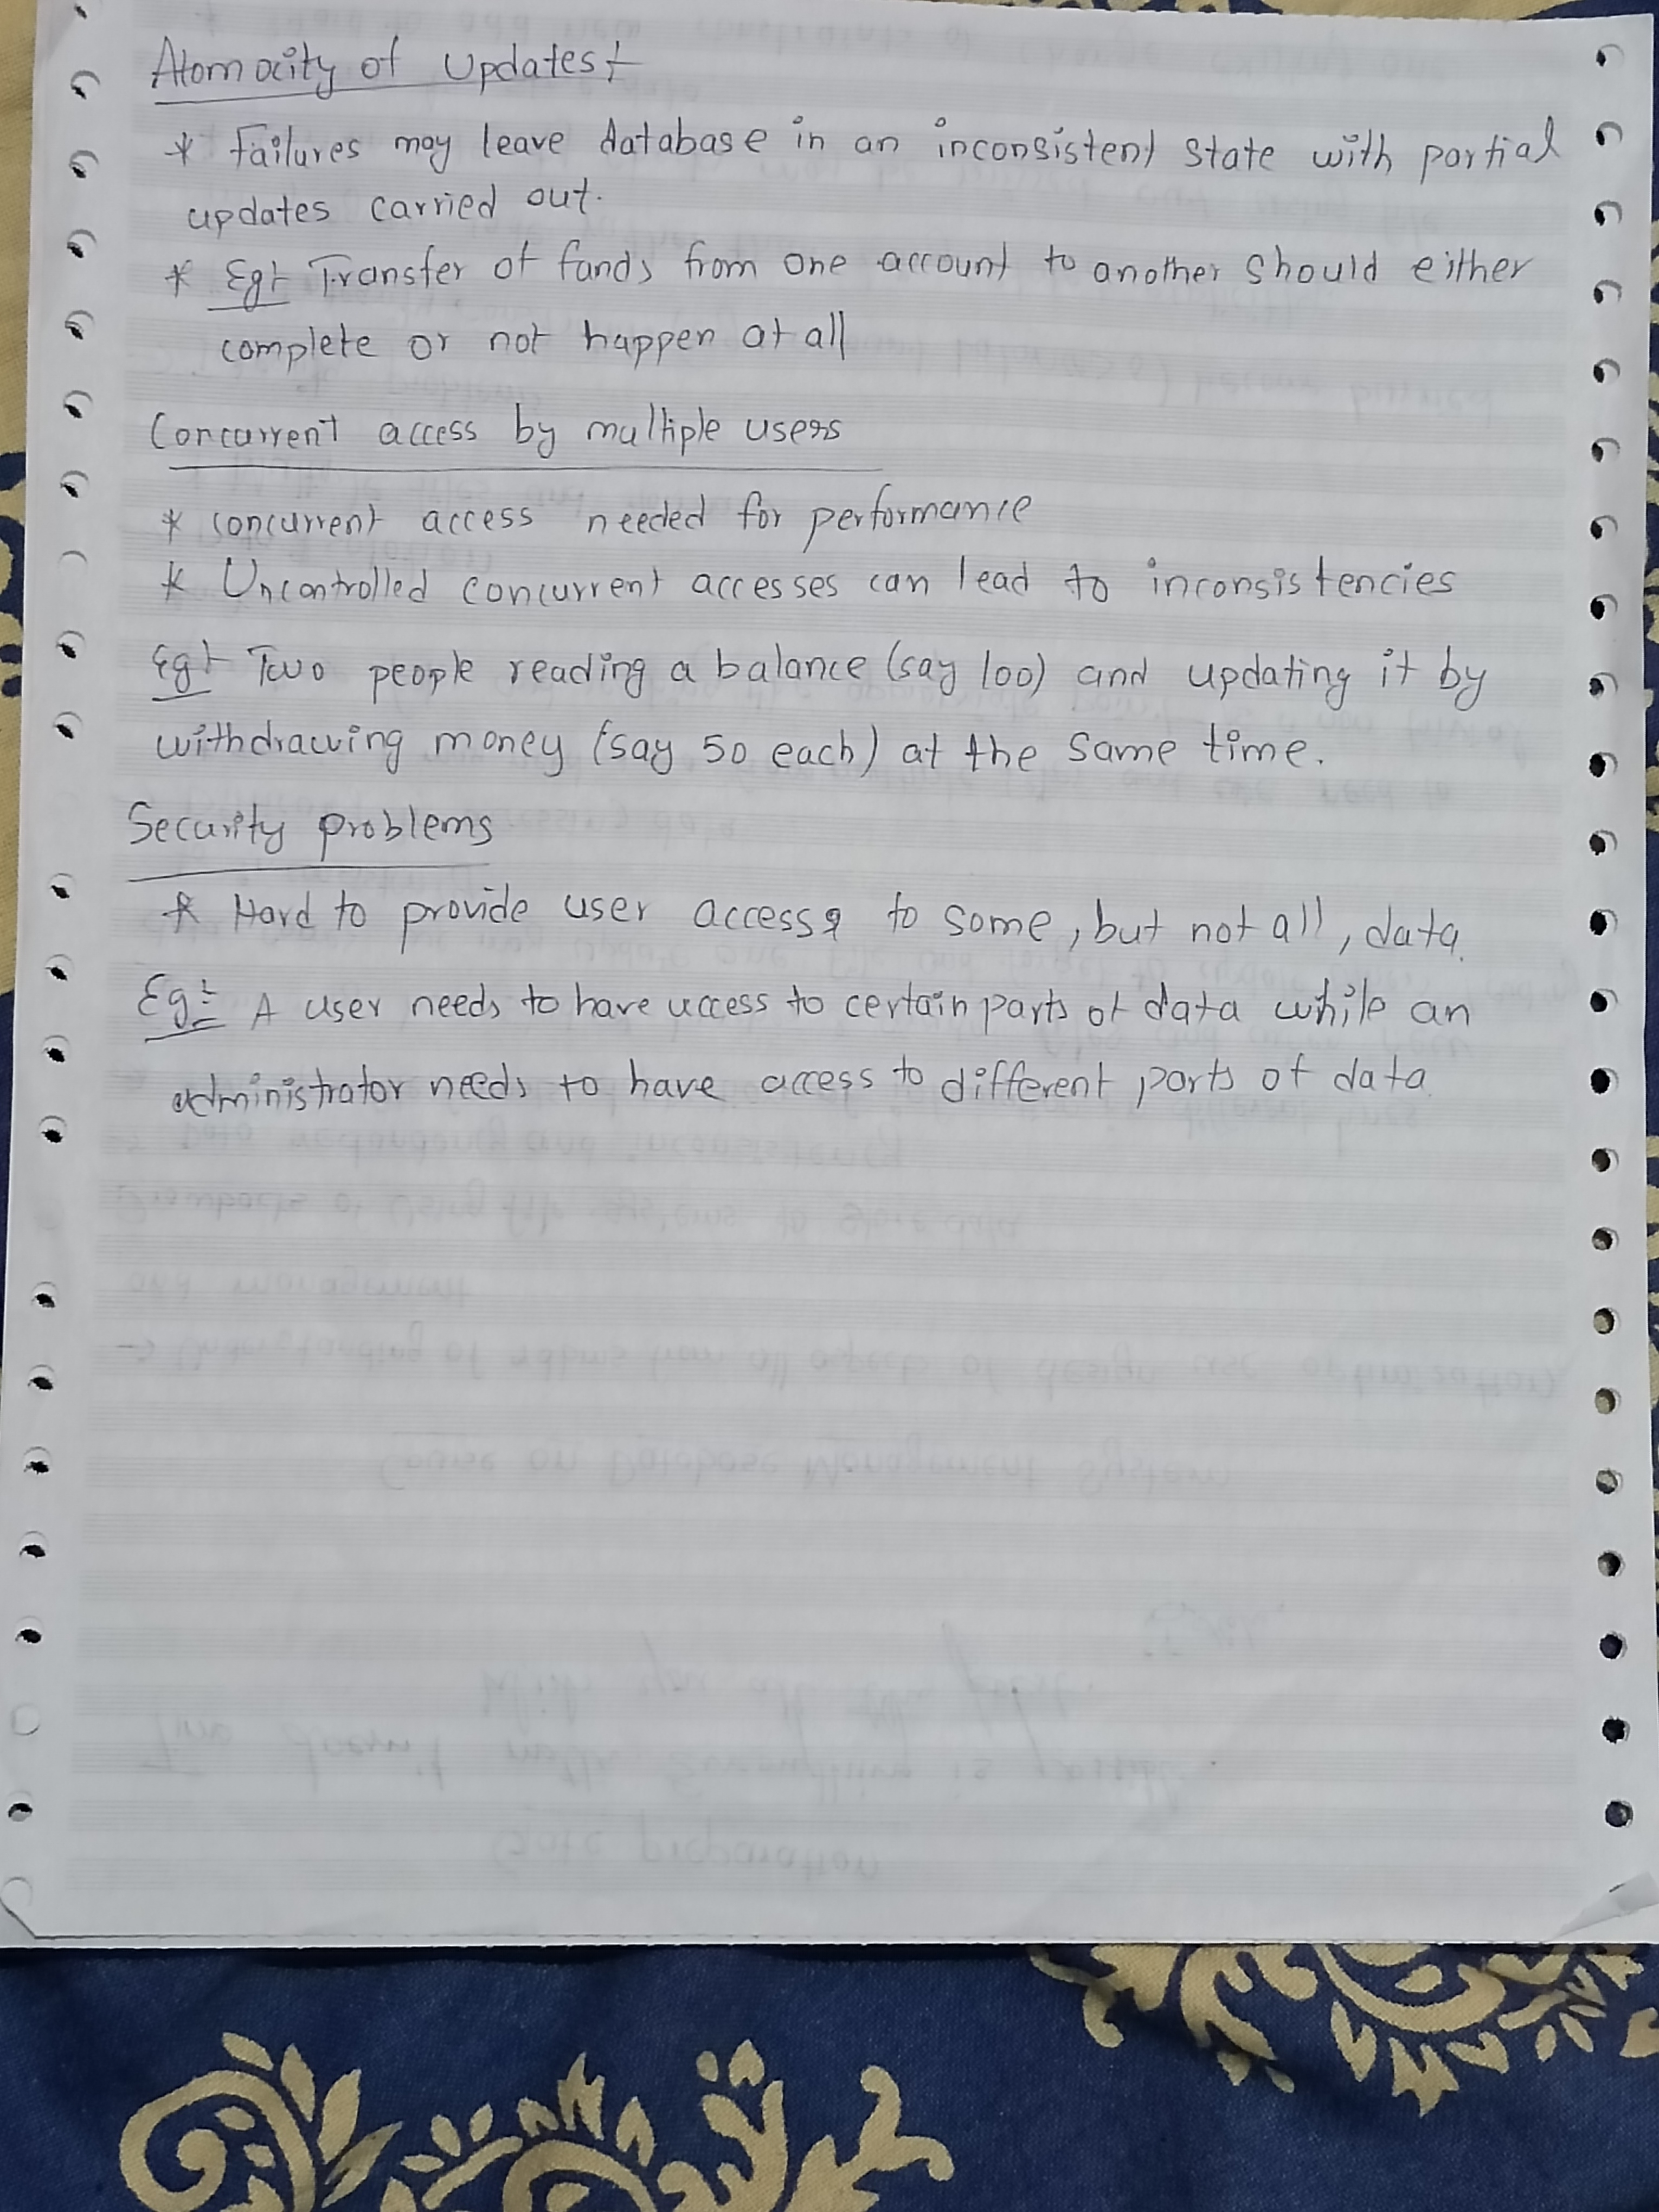 Atomocity of Updates:-
* Failures may leave database in an inconsistent state with partial
updates carried out.
* Eg:- Transfer of funds from one account to another should either
complete or not happen at all
Concurrent access by multiple users
* concurrent access needed for performance
* Uncontrolled concurrent accesses can lead to inconsistencies
Eg:- Two people reading a balance (say 100) and updating it by
withdrawing money (say 50 each) at the same time.
Security problems
* Hard to provide user access to some, but not all, data.
Eg:- A user needs to have access to certain parts of data while an
administrator needs to have access to different parts of data